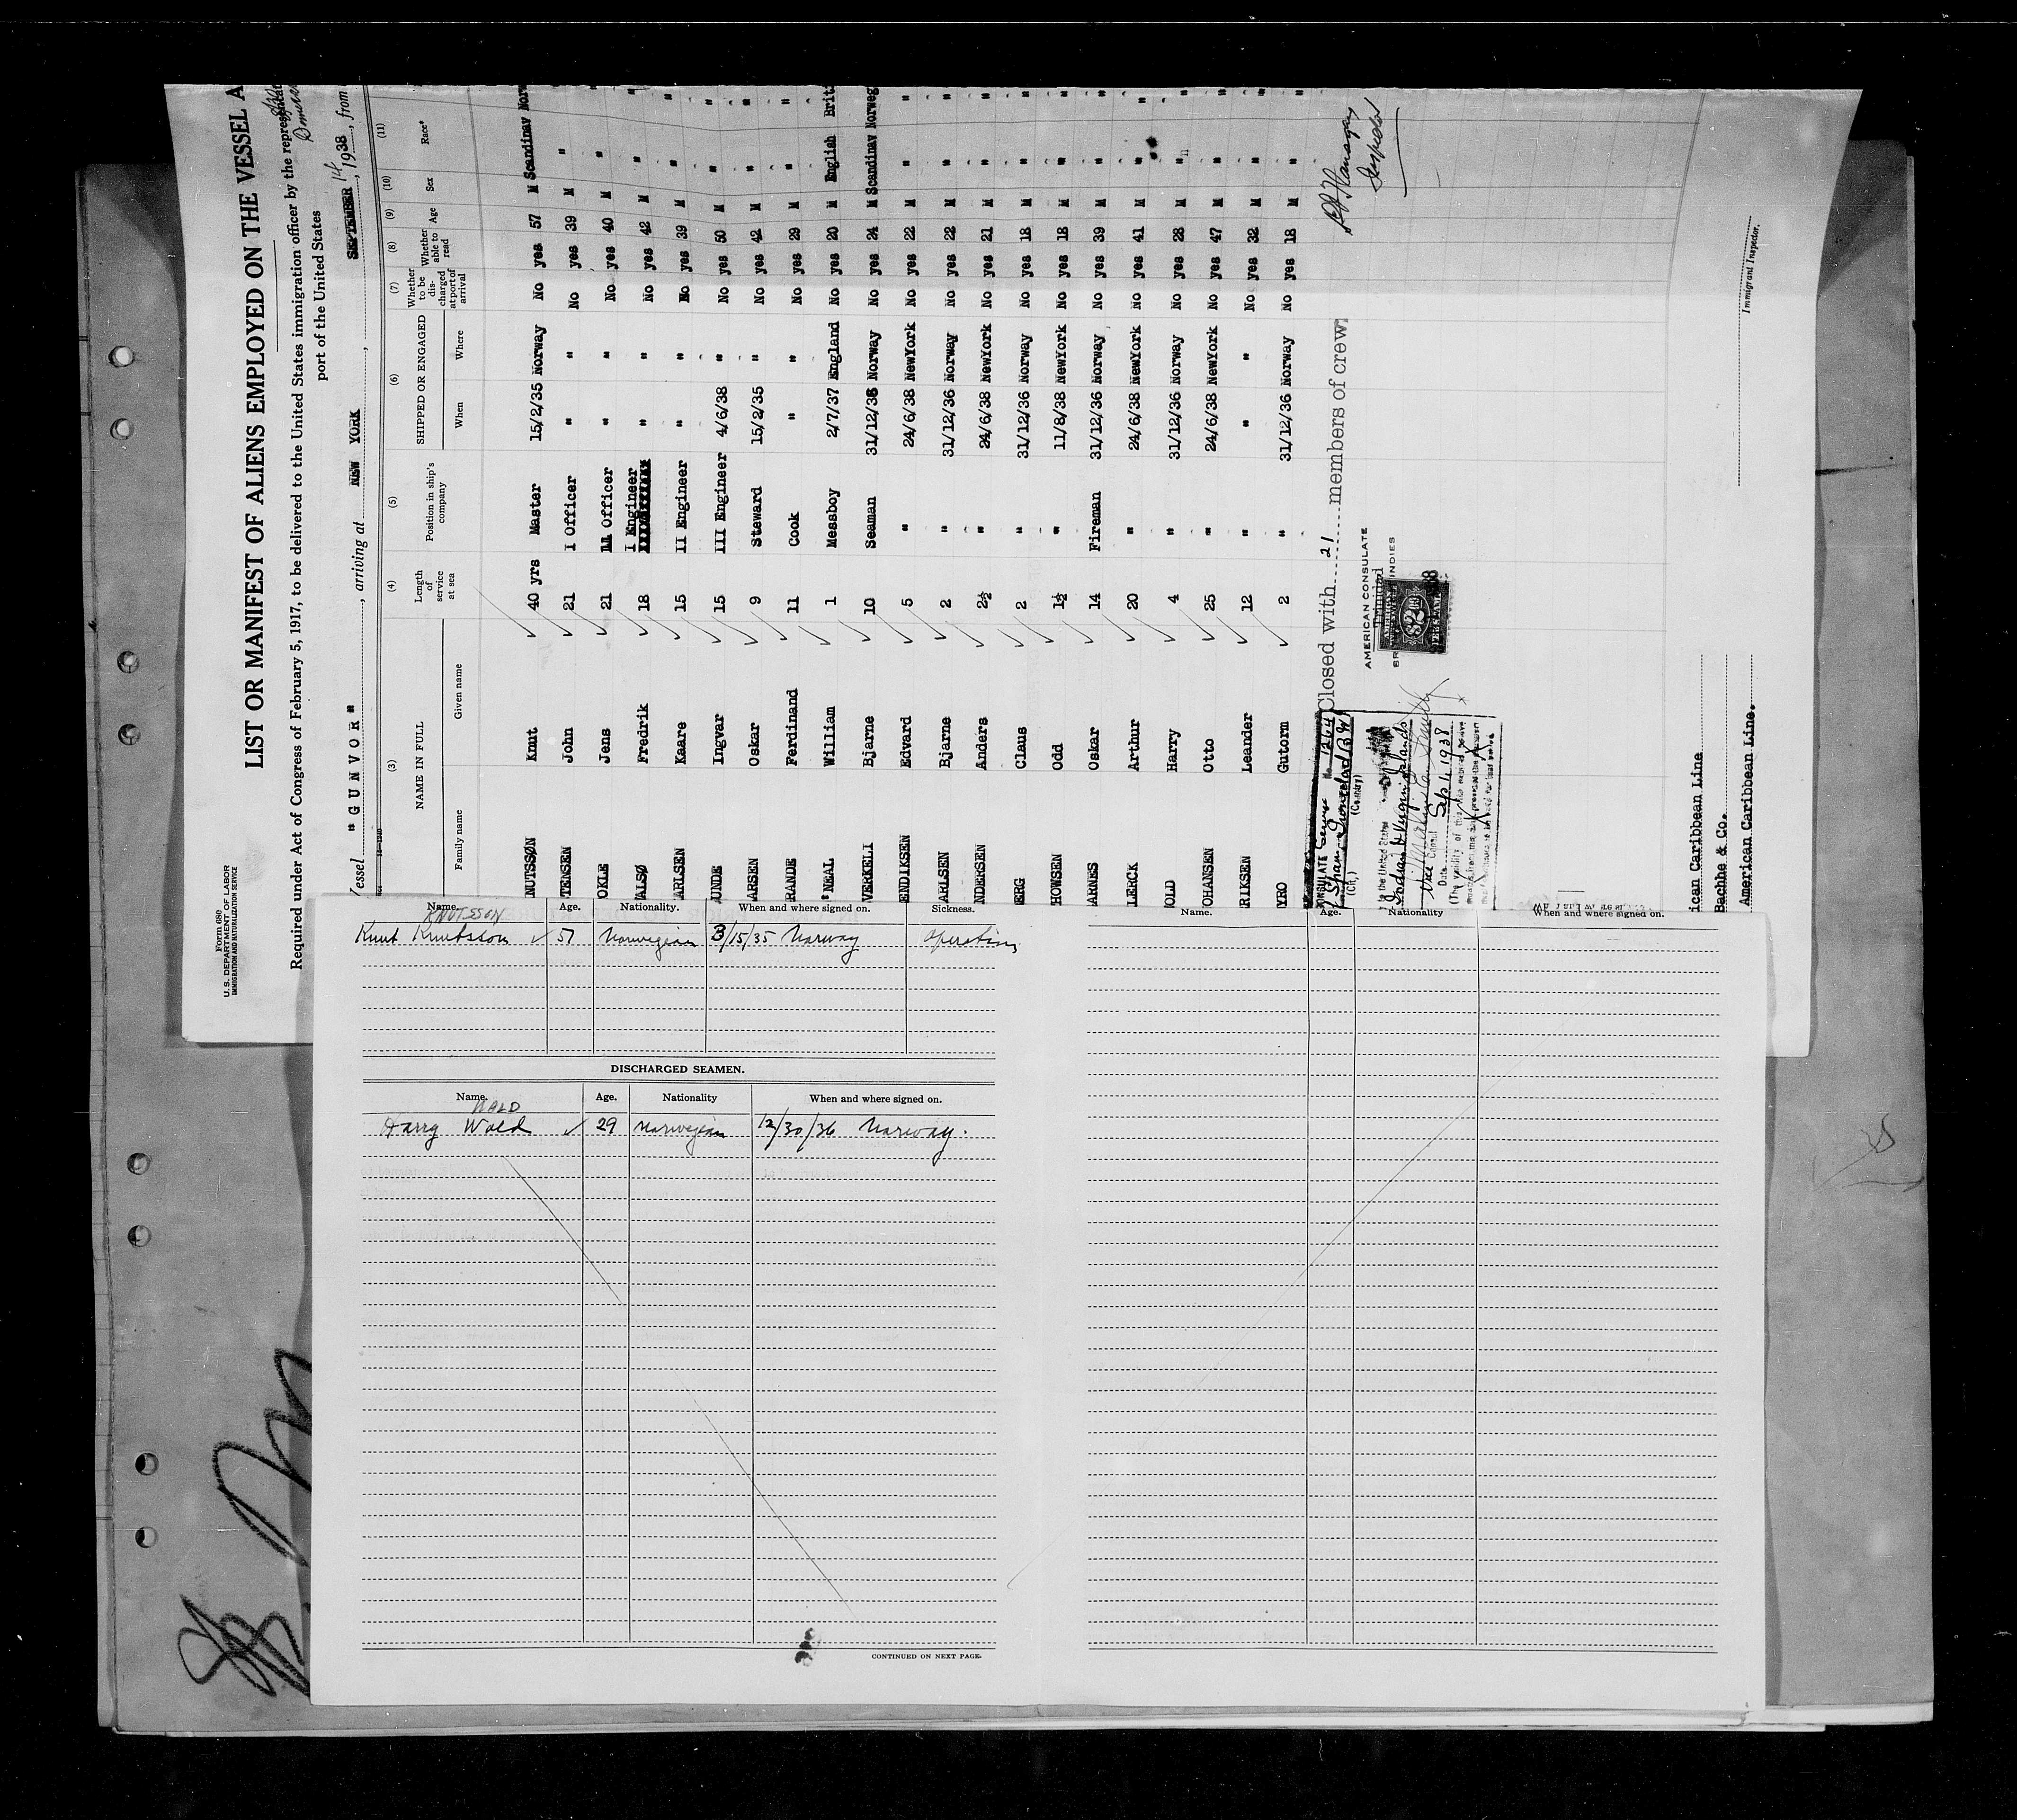 Form 680
U. S. DEPARTMENT OF LABOR
IMMIGRATION AND NATURALIZATION SERVICE
LIST OR MANIFEST OF ALIENS EMPLOYED ON THE VESSEL A
Required under Act of Congress of February 5, 1917, to be delivered to the United States immigration officer by the represe
port of the United States
Vessel "GUNVOR", arriving at NEW YORK, SEPTEMBER 14, 1938, from
(3) (4) (5) (6) (7) (8) (9) (10) (11)
NAME IN FULL Length of service at sea Position in ship's company SHIPPED OR ENGAGED Whether to be discharged at port of arrival Whether able to read Age Sex Race*
Family name Given name When Where
NUTSSØN Knut 40 yrs Master 15/2/35 Norway No yes 57 M Scandinav Norw
TENSEN John 21 I Officer " " No yes 39 M " "
OKLE Jens 21 II Officer " " No yes 40 M " "
ALSØ Fredrik 18 I Engineer " " No yes 42 M " "
ARLSEN Kaare 15 II Engineer " " No yes 39 M " "
UNDE Ingvar 15 III Engineer 4/6/38 " No yes 50 M " "
ARSEN Oskar 9 Steward 15/2/35 " No yes 42 M " "
RANDE Ferdinand 11 Cook " " No yes 29 M " "
'NEAL William 1 Messboy 2/7/37 England No yes 20 M English Brit
VERKELI Bjarne 10 Seaman 31/12/36 Norway No yes 24 M Scandinav Norweg
ENDIKSEN Edvard 5 " 24/6/38 NewYork No yes 22 M " "
ARLSEN Bjarne 2 " 31/12/36 Norway No yes 22 M " "
NDERSEN Anders 2½ " 24/6/38 NewYork No yes 21 M " "
ERG Claus 2 " 31/12/36 Norway No yes 18 M " "
HOWSEN Odd 1½ " 11/8/38 NewYork No yes 18 M " "
ARNES Oskar 14 Fireman 31/12/36 Norway No yes 39 M " "
LERCK Arthur 20 " 24/6/38 NewYork No yes 41 M " "
OLD Harry 4 " 31/12/36 Norway No yes 28 M " "
OHANSEN Otto 25 " 24/6/38 NewYork No yes 47 M " "
RIKSEN Leander 12 " " " No yes 32 M " "
YRO Gutorm 2 " 31/12/36 Norway No yes 18 M " "
Closed with 21 members of crew
Inspector
AMERICAN CONSULATE
Trinidad
INDIES
No. 1264
(City) (Country)
Vice Consul
Date Sep 1, 1938
ican Caribbean Line
Bachhe & Co.
American Caribbean Line.
Immigrant Inspector.
Name. Age. Nationality. When and where signed on. Sickness.
KNUTSSON
Knut Knutsson 57 Norwegian 3/15/35 Norway operation
DISCHARGED SEAMEN.
Name. Age. Nationality When and where signed on.
WALD
Harry Wold 29 Norwegian 12/30/36 Norway.
CONTINUED ON NEXT PAGE.
Name. Age. Nationality When and where signed on.